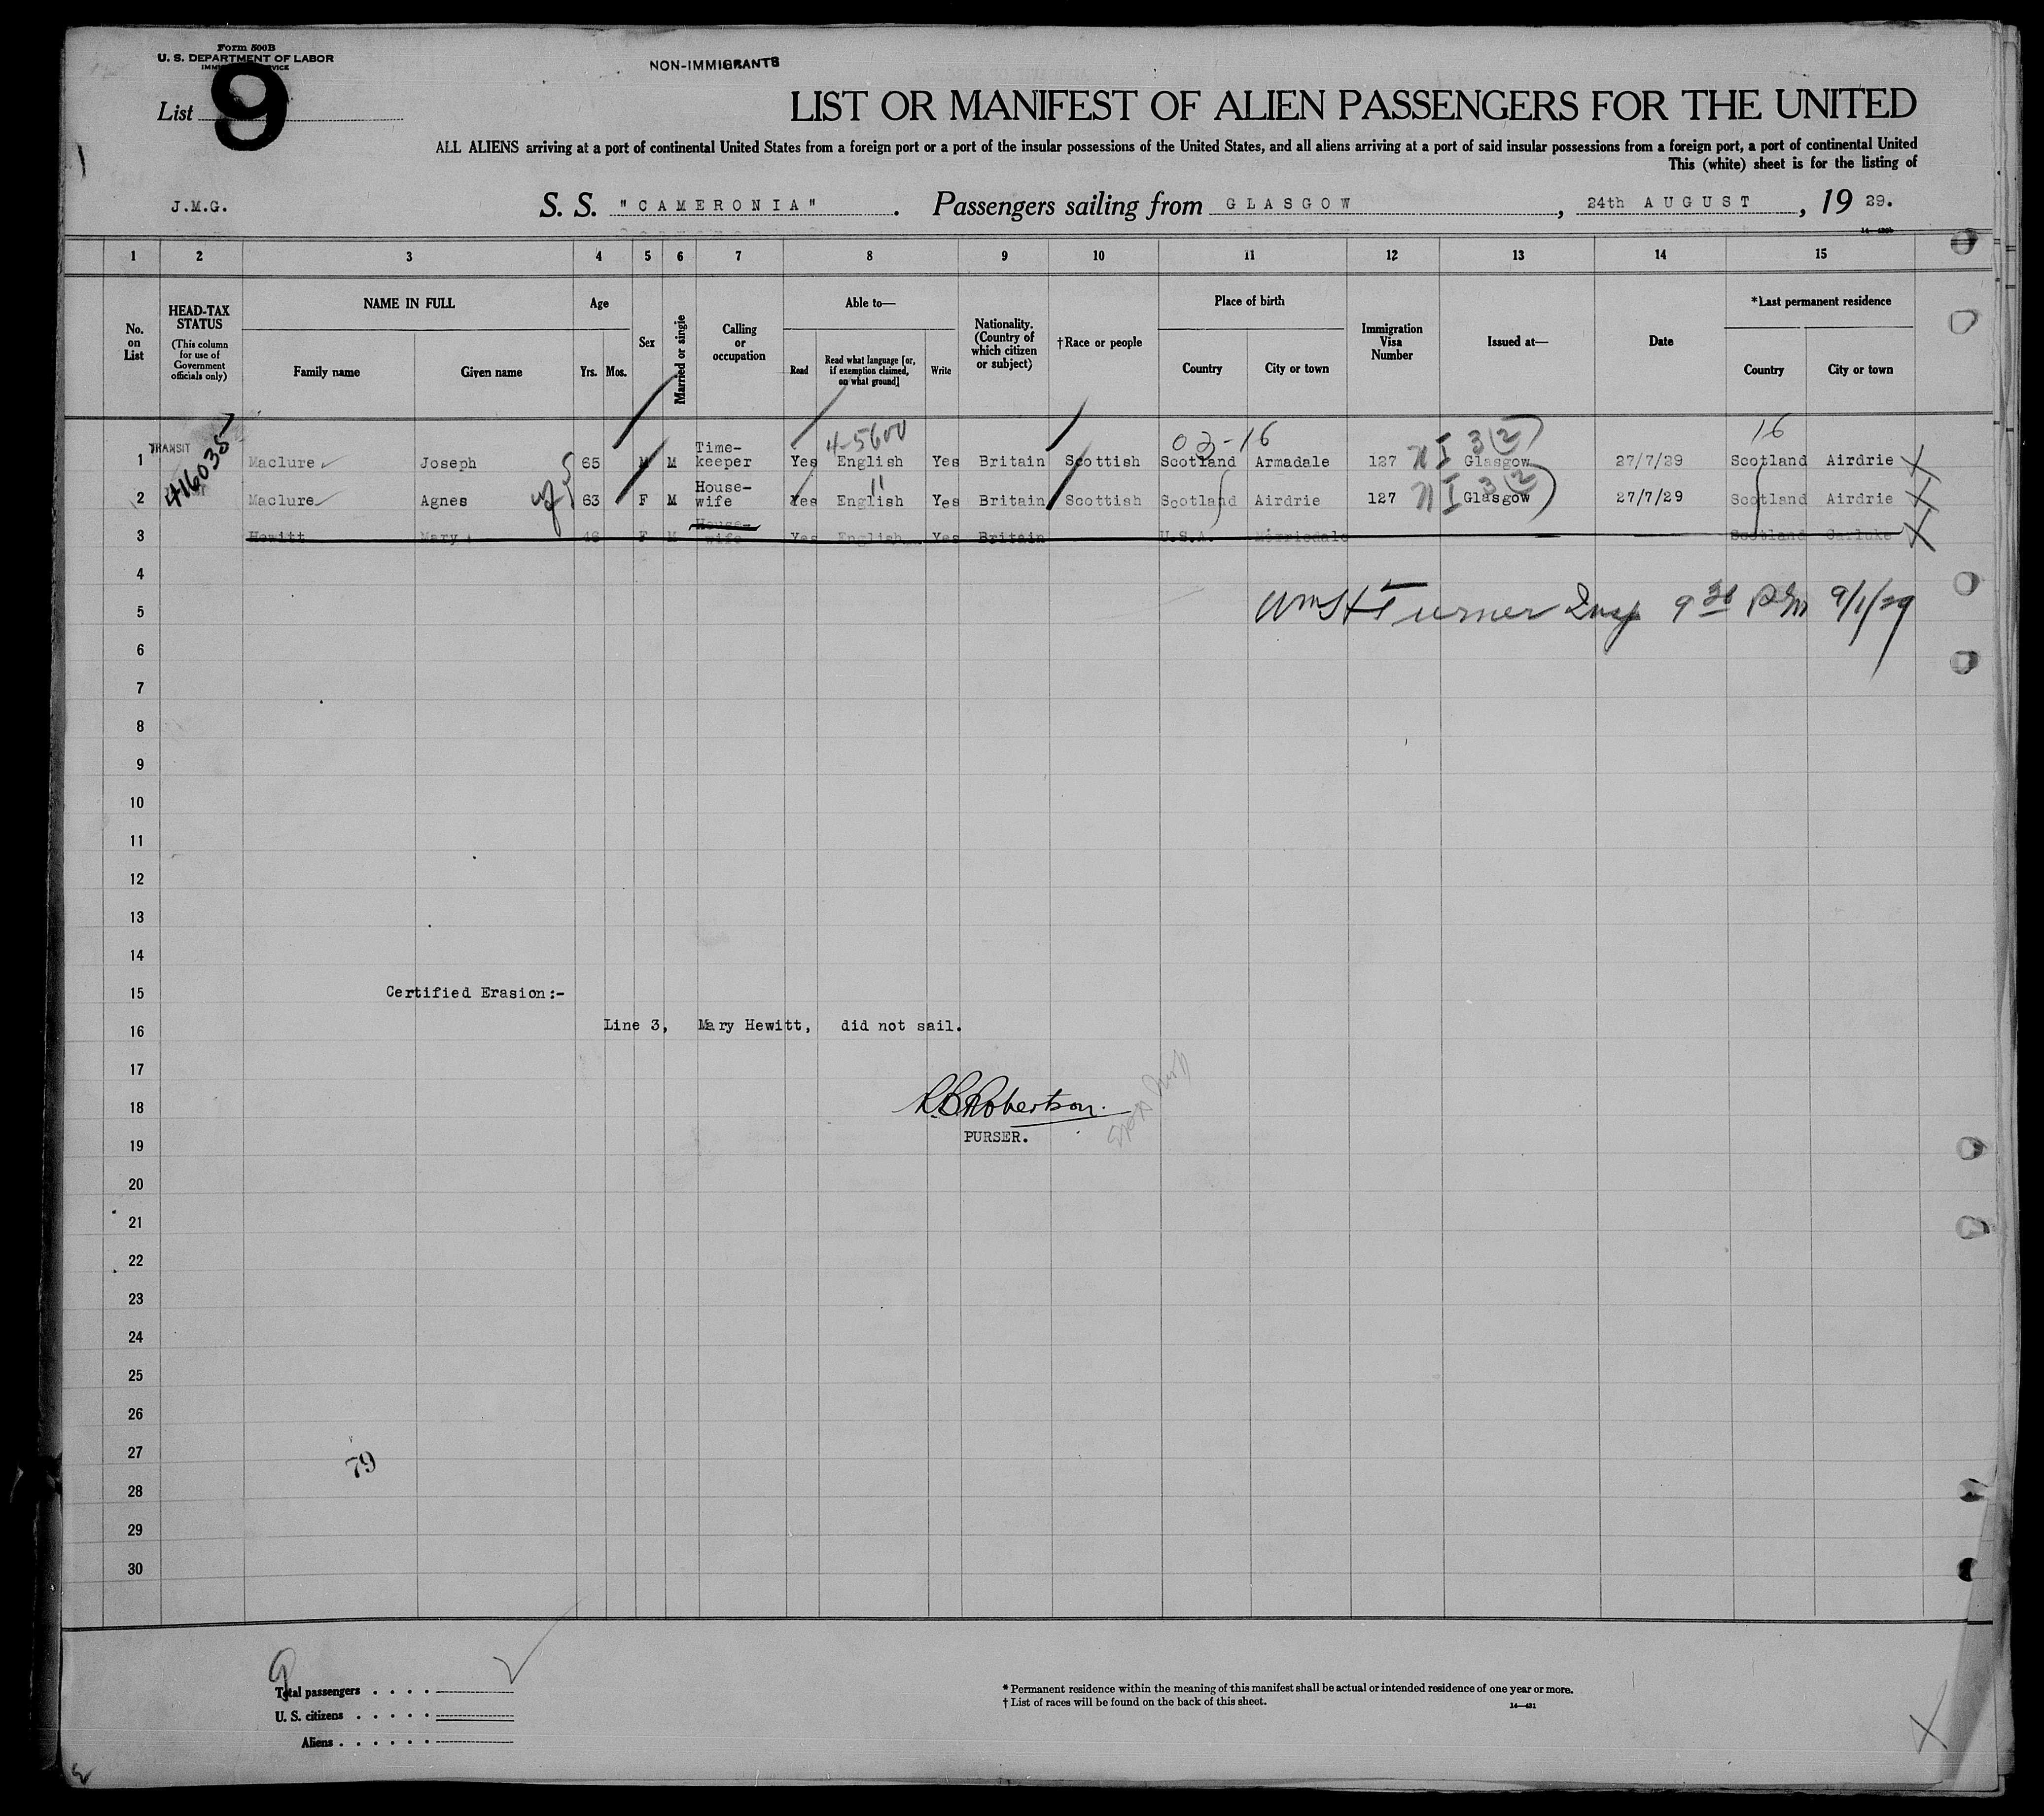 Form 500B
U. S. DEPARTMENT OF LABOR
NON-IMMIGRANTS
List 9
LIST OR MANIFEST OF ALIEN PASSENGERS FOR THE UNITED
ALL ALIENS arriving at a port of continental United States from a foreign port or a port of the insular possessions of the United States, and all aliens arriving at a port of said insular possessions from a foreign port, a port of continental United
This (white) sheet is for the listing of
J.M.G. S. S. "CAMERONIA". Passengers sailing from GLASGOW, 24th AUGUST, 19 29.
1 2 3 4 5 6 7 8 9 10 11 12 13 14 15
No. on List
HEAD-TAX STATUS (This column for use of Government officials only)
NAME IN FULL
Family name Given name
Age
Yrs. Mos.
Sex
Married or single
Calling or occupation
Able to—
Read Read what language [or, if exemption claimed, on what ground] Write
Nationality. (Country of which citizen or subject)
†Race or people
Place of birth
Country City or town
Immigration Visa Number
Issued at—
Date
*Last permanent residence
Country City or town
TRANSIT 416035 4-5600 03-16 16
1 Maclure Joseph 65 M M Time-keeper Yes English Yes Britain Scottish Scotland Armadale 127 NI 3(2) Glasgow 27/7/29 Scotland Airdrie X
2 Maclure Agnes 63 F M House-wife Yes English 11 Yes Britain Scottish Scotland Airdrie 127 NI 3(2) Glasgow 27/7/29 Scotland Airdrie X
3 Hewitt Mary 48 F M House-wife Yes English Yes Britain U.S.A. Morrisdale Scotland Carluke X
4
Wm H Turner Insp 9 30 PM 9/1/29
5
6
7
8
9
10
11
12
13
14
15 Certified Erasion:-
16 Line 3, Mary Hewitt, did not sail.
17
18 R B Robertson.
19 PURSER.
20
21
22
23
24
25
26
27
79
28
29
30
Total passengers . . . .
U. S. citizens . . . . .
Aliens . . . . . .
* Permanent residence within the meaning of this manifest shall be actual or intended residence of one year or more.
† List of races will be found on the back of this sheet.
14—431